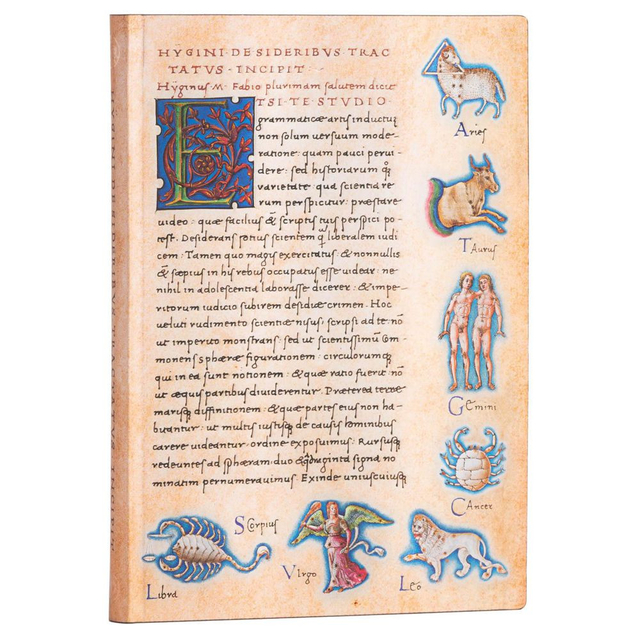 HYGINI·DE·SIDERIBVS·TRAC
TATVS·INCIPIT·
Hyginus·M·Fabio plurimam salutem dicit
ETSI·TE·STVDIO
grammaticæ artis inductũ
non solum uersuum mode-
ratione·quam pauci perui-
dere: sed historiarum q̃
uarietate qua scientia re
rum perspicitur: præstare
uideo: quæ facilius & scriptis tuis perspici po-
test. Desiderans potius scientem q̃ liberalem iudi
cem: Tamen quo magis exercitatus: & nonnullis
& sæpius in his rebus occupatus esse uidear: ne-
nihil in adolescentia laborasse dicerer: & impe-
ritorum iudicio subirem desidiæ crimen. Hoc
ueluti rudimento scientiæ nisus: scripsi ad te: nõ
ut imperito monstrans: sed ut scientissimũ com-
monens sphæræ figurationem: circulorumq;
qui in ea sunt notionem: & quæ ratio fuerit nõ
ut æquis partibus diuiderentur. Præterea terræ
marisq; diffinitionem: & quæ partes eius non ha-
bitantur: ut multis iustisq; de causis hominibus
carere uideantur·ordine exposuimus: Rursusq;
redeuntes ad sphæram duo & signa no
minatim pernumerauimus. Exinde uniuscuiusq;
Aries
TAurus
GEmini
CAncer
LEo
VIrgo
SCorpius
Libra